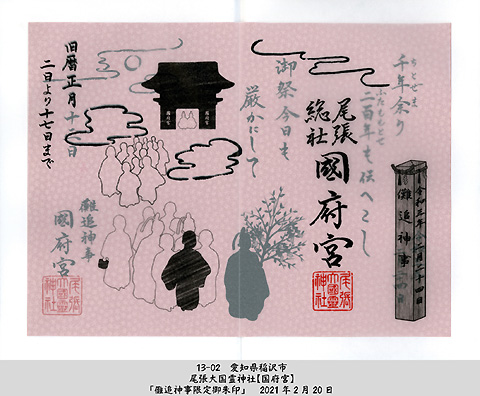 千年余り
ふたももとせ
二百年も伝へこし
御祭今日も
厳かにして
尾張
総社
國府宮
令和三年二月二十四日
儺追神事
旧暦正月
二日より十七日まで
儺追神事
國府宮
尾張
大國霊
神社
尾張
大國霊
神社
13-02 愛知県稲沢市
尾張大国霊神社【国府宮】
「儺追神事限定御朱印」 2021年2月20日